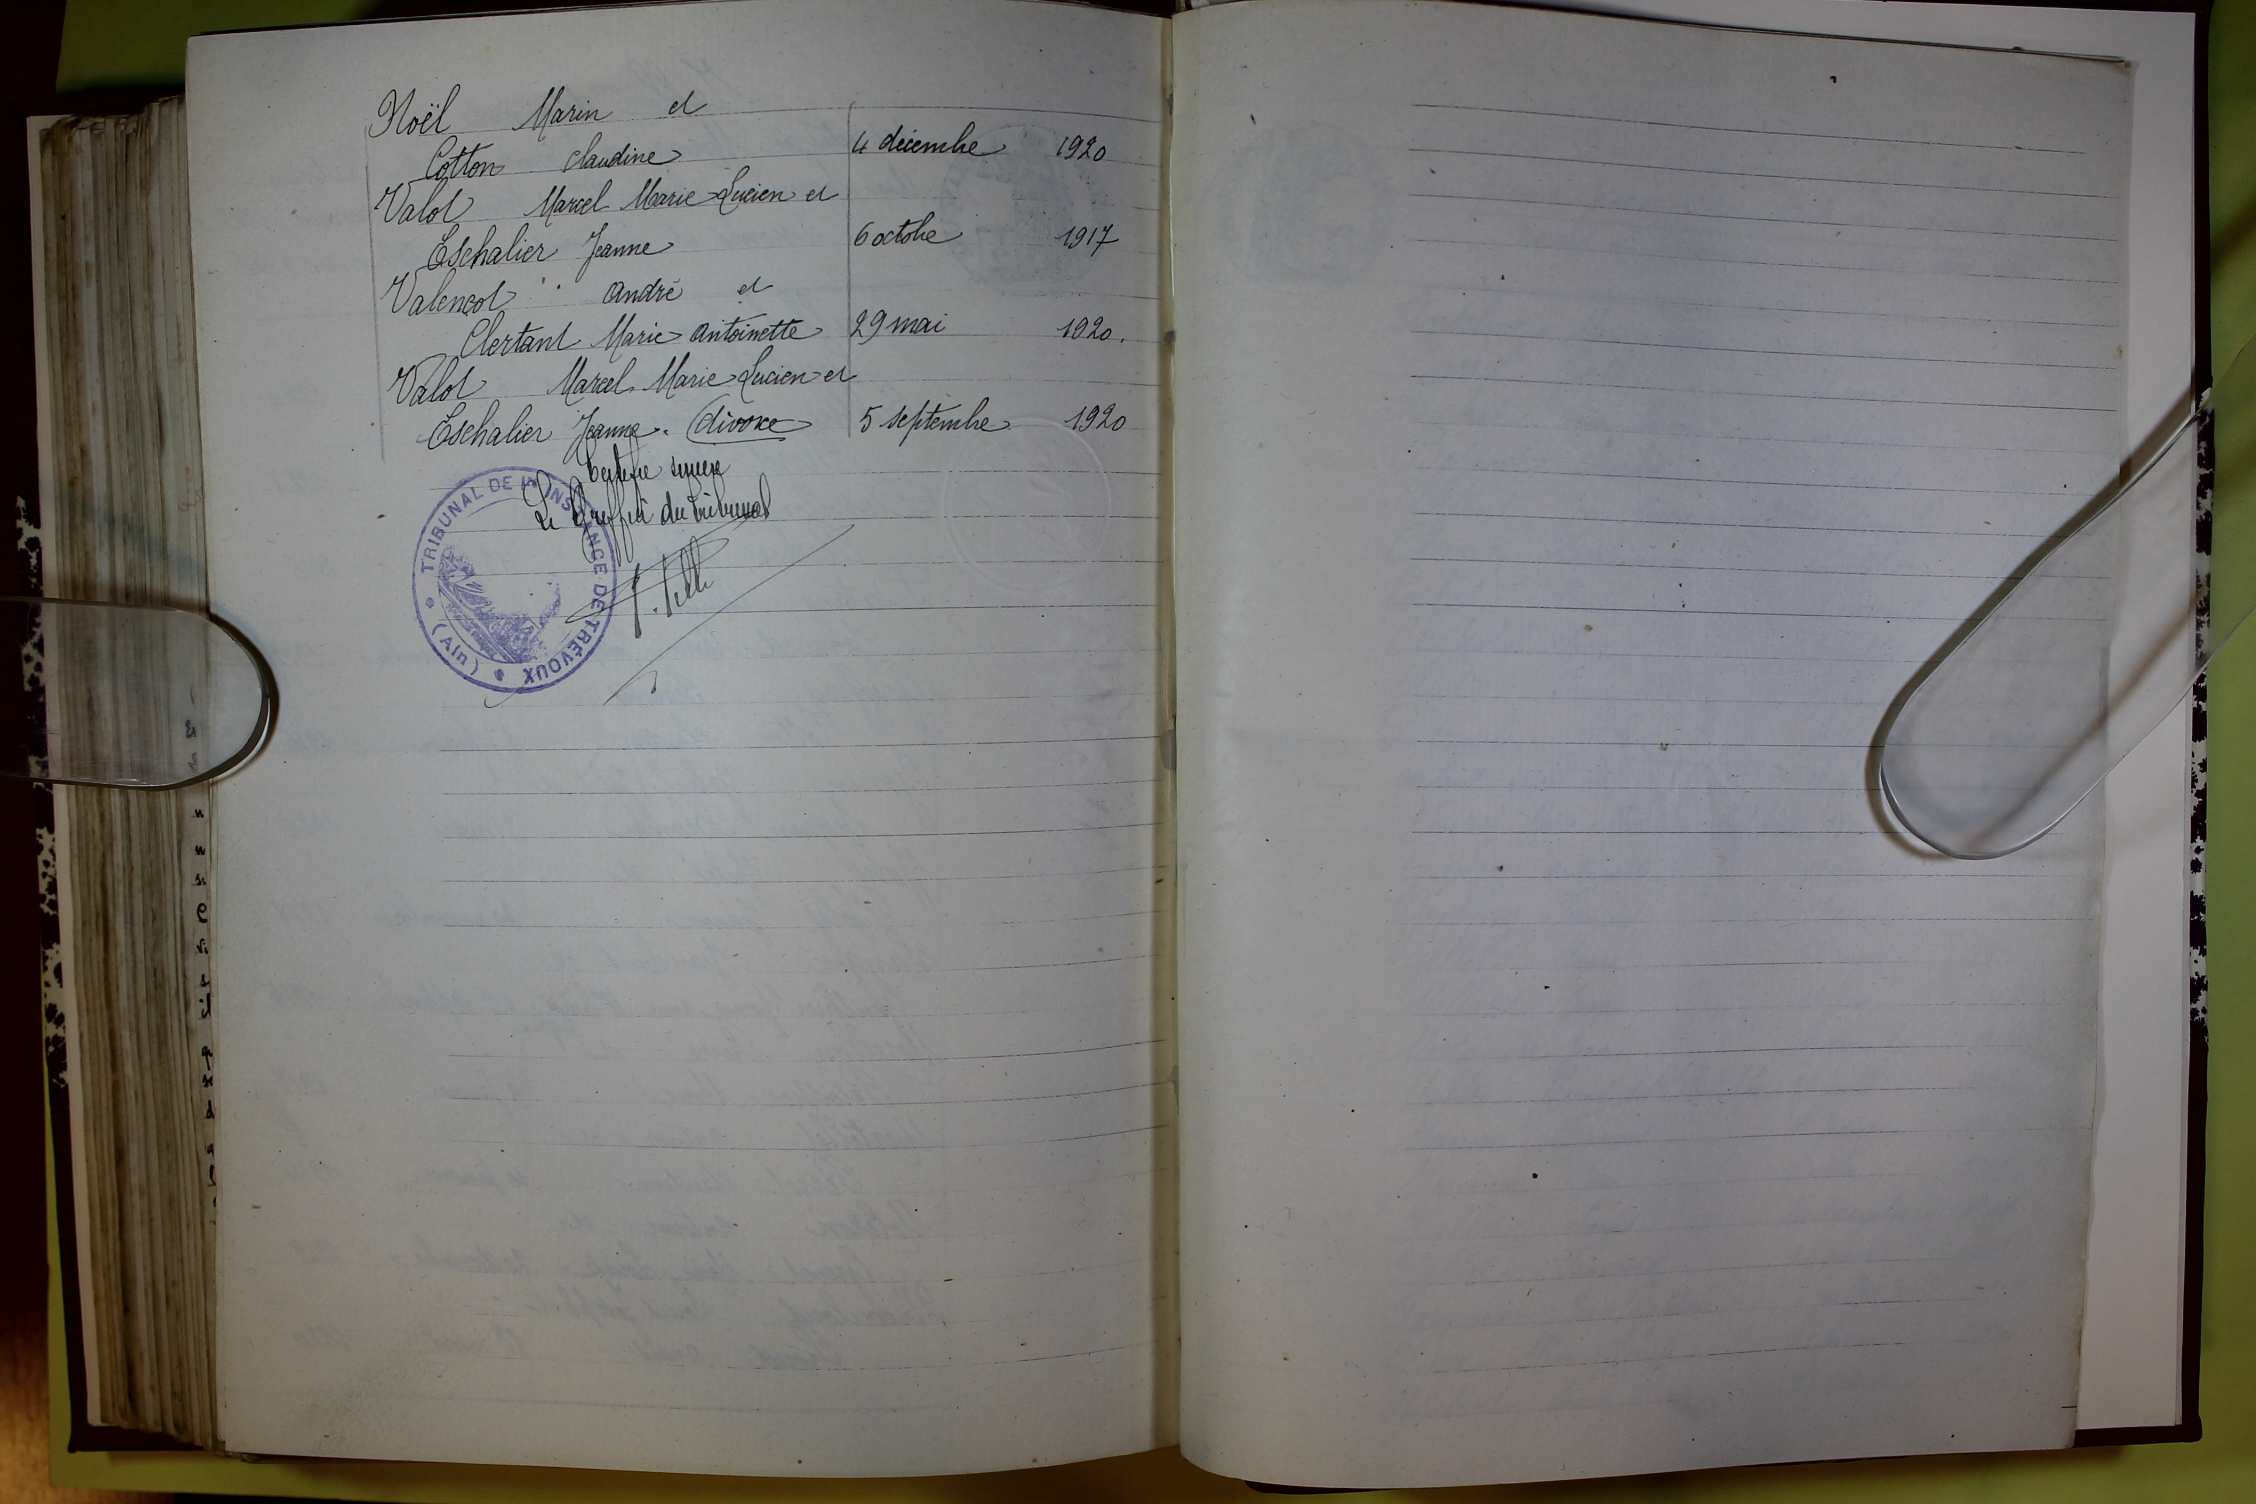 Noël Marin et
Cotton Claudine 4 décembre 1920
Valot Marcel Marie Lucien et
Eschalier Jeanne 6 octobre 1917
Valençot André et
Clertant Marie Antoinette 29 mai 1920.
Valot Marcel Marie Lucien et
Eschalier Jeanne. (divorce 5 septembre 1920
Certifié sincère
Le Greffier du tribunal
TRIBUNAL DE 1re INSTANCE DE TRÉVOUX
(Ain)